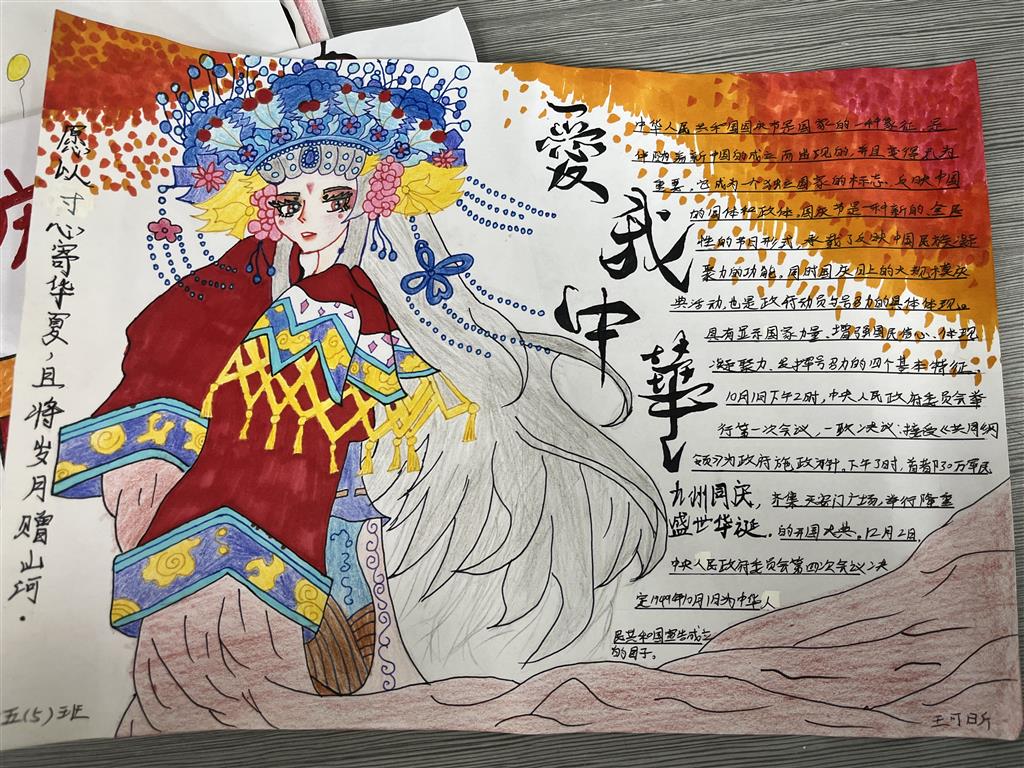 愿以寸心寄华夏，且将岁月赠山河.
愛我中華
中华人民共和国国庆节是国家的一种象征，是
伴随着新中国的成立而出现的，并且变得尤为
重要，它成为一个独立国家的标志，反映中国
的国体和政体。国庆节是一种新的、全民
性的节日形式，承载了反映中国民族凝
聚力的功能。同时国庆日上的大规模庆
典活动，也是政府动员与号召力的具体体现。
具有显示国家力量、增强国民信心、体现
凝聚力、发挥号召力的四个基本特征。
10月1日下午2时，中央人民政府委员会举
行第一次会议，一致决议：接受《共同纲
领》为政府施政方针。下午3时，首都30万军民
齐集天安门广场，举行隆重
的开国大典。12月2日，
中央人民政府委员会第四次会议决
定1949年10月1日为中华人
民共和国宣告成立
的日子。
九州同庆，
盛世华诞
五(5)班
王可日斤